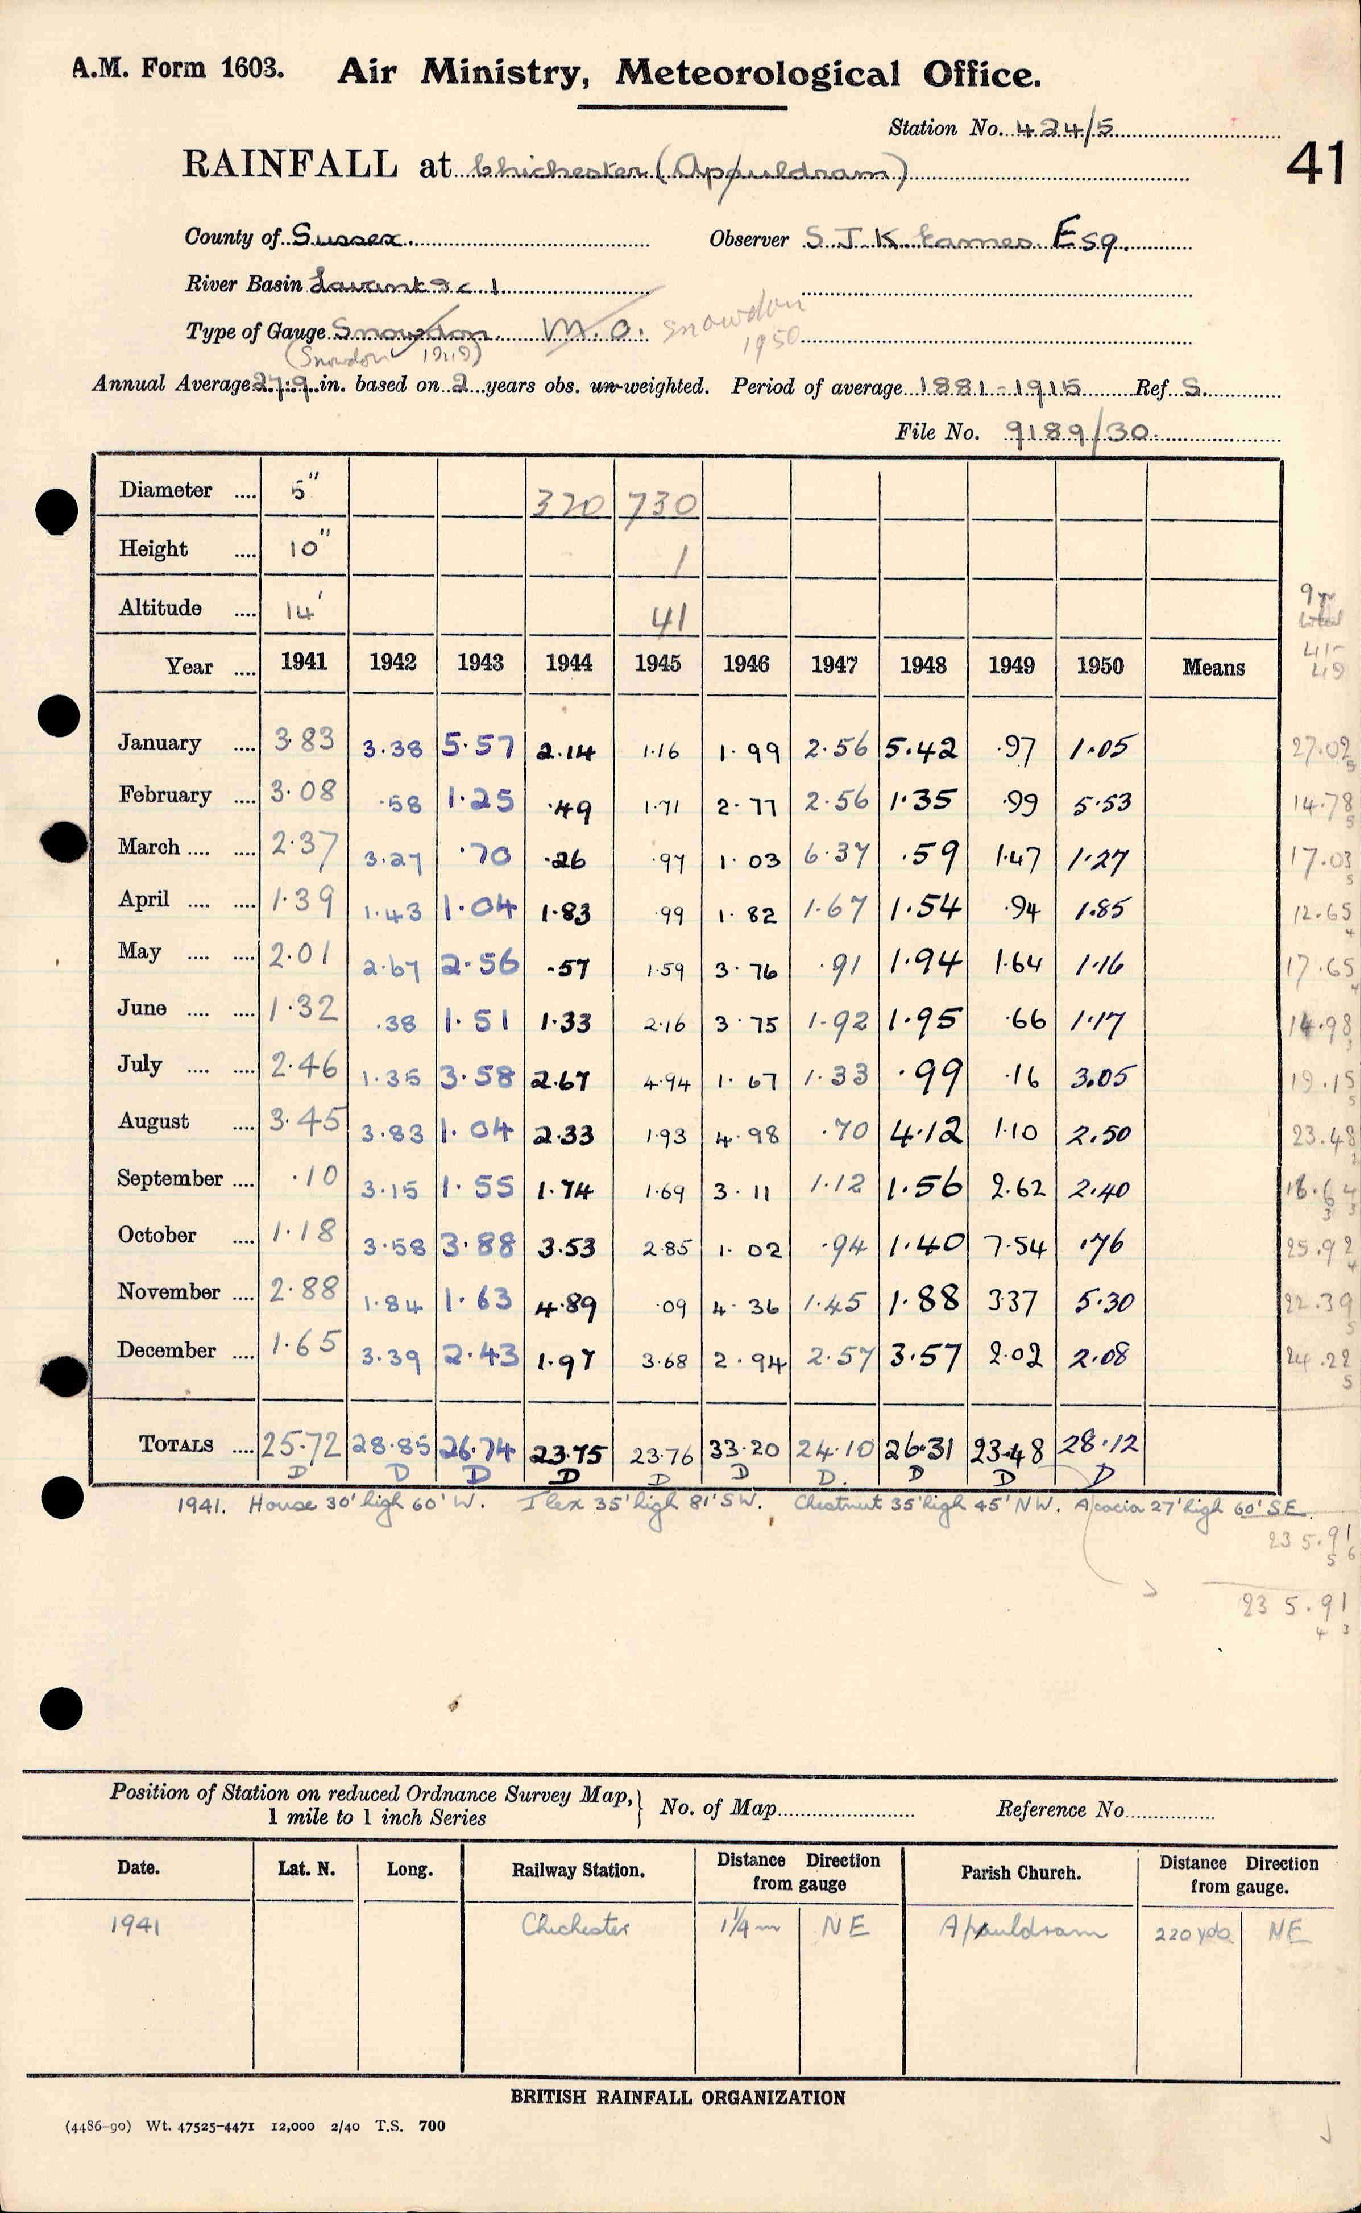 A.M. Form 1603. Air Ministry, Meteorological Office.
Station No. 424/5
41
RAINFALL at Chichester (Appuldram)
County of Sussex. Observer S J K Eames Esq.
River Basin Lavant &c 1
Type of Gauge Snowdon M.O. Snowdon 1950
(Snowdon 1919)
Annual Average 27.9 in. based on 2 years obs. un-weighted. Period of average 1881-1915 Ref S.
File No. 9189/30
Diameter .... 5" 320 730
Height .... 10" 1
Altitude .... 14' 41
9 yr total 41-49
Year .... 1941 1942 1943 1944 1945 1946 1947 1948 1949 1950 Means
January .... 3.83 3.38 5.57 2.14 1.16 1.99 2.56 5.42 .97 1.05 27.02
February .... 3.08 .58 1.25 .49 1.71 2.77 2.56 1.35 .99 5.53 14.78
March .... .... 2.37 3.27 .70 .26 .97 1.03 6.37 .59 1.47 1.27 17.03
April .... .... 1.39 1.43 1.04 1.83 .99 1.82 1.67 1.54 .94 1.85 12.65
May .... .... 2.01 2.67 2.56 .57 1.59 3.76 .91 1.94 1.64 1.16 17.65
June .... .... 1.32 .38 1.51 1.33 2.16 3.75 1.92 1.95 .66 1.17 14.98
July .... .... 2.46 1.35 3.58 2.67 4.94 1.67 1.33 .99 .16 3.05 19.15
August .... 3.45 3.83 1.04 2.33 1.93 4.98 .70 4.12 1.10 2.50 23.48
September .... .10 3.15 1.55 1.74 1.69 3.11 1.12 1.56 2.62 2.40 16.64
October .... 1.18 3.58 3.88 3.53 2.85 1.02 .94 1.40 7.54 .76 25.92
November .... 2.88 1.84 1.63 4.89 .09 4.36 1.45 1.88 3.37 5.30 22.39
December .... 1.65 3.39 2.43 1.97 3.68 2.94 2.57 3.57 2.02 2.08 24.22
TOTALS .... 25.72 28.85 26.74 23.75 23.76 33.20 24.10 26.31 23.48 28.12
D D D D D D D. D D D
1941. House 30' high 60' W. Ilex 35' high 81' SW. Chestnut 35' high 45' NW. Acacia 27' high 60' SE.
235.91
235.91
Position of Station on reduced Ordnance Survey Map, 1 mile to 1 inch Series } No. of Map Reference No.
Date. Lat. N. Long. Railway Station. Distance Direction from gauge Parish Church. Distance Direction from gauge.
1941 Chichester 1¼ m NE Apuldram 220 yds NE
BRITISH RAINFALL ORGANIZATION
(4486-90) Wt. 47525-4471 12,000 2/40 T.S. 700